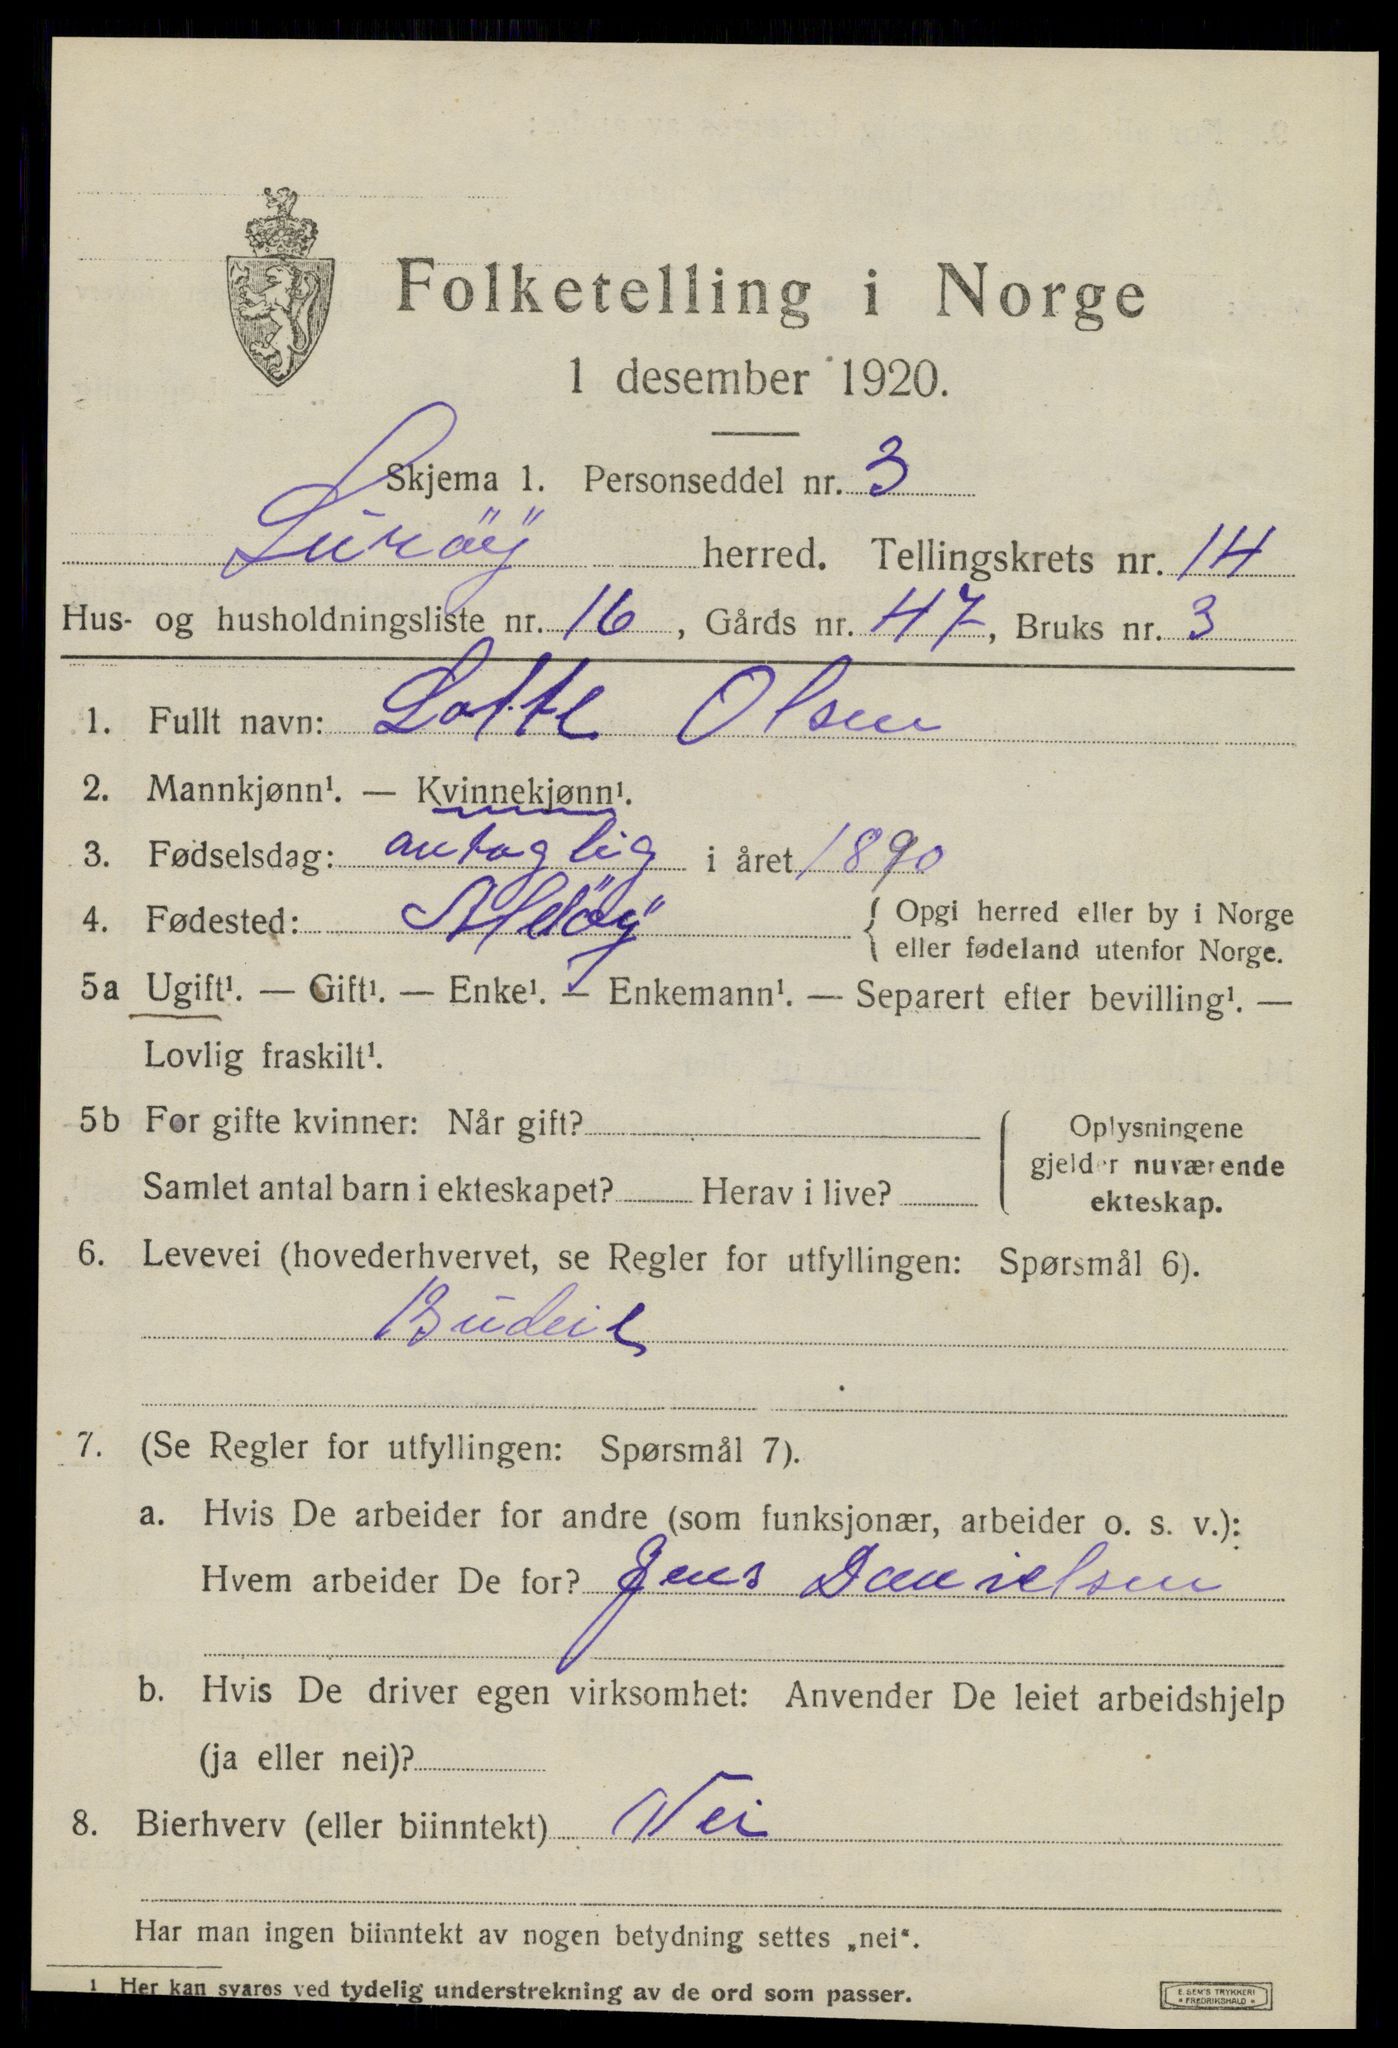 Folketelling i Norge
1 desember 1920.
Skjema 1. Personseddel nr. 3
Luröy herred. Tellingskrets nr. 14
Hus- og husholdningsliste nr. 16, Gårds nr. 47, Bruks nr. 3
1. Fullt navn: Lotte Olsen
2. Mannkjønn¹. — Kvinnekjønn¹.
3. Fødselsdag: antaglig i året 1890
4. Fødested: { Opgi herred eller by i Norge
eller fødeland utenfor Norge.
5a Ugift¹. — Gift¹. — Enke¹. — Enkemann¹. — Separert efter bevilling¹. —
Lovlig fraskilt¹.
5b For gifte kvinner: Når gift?
Samlet antal barn i ekteskapet? Herav i live?
Oplysningene
gjelder nuværende
ekteskap.
6. Levevei (hovederhvervet, se Regler for utfyllingen: Spørsmål 6).
Budeie
7. (Se Regler for utfyllingen: Spørsmål 7).
a. Hvis De arbeider for andre (som funksjonær, arbeider o. s. v.):
Hvem arbeider De for? Jens Danielsen
b. Hvis De driver egen virksomhet: Anvender De leiet arbeidshjelp
(ja eller nei)?
8. Bierhverv (eller biinntekt) Nei
Har man ingen biinntekt av nogen betydning settes „nei“.
1 Her kan svares ved tydelig understrekning av de ord som passer.
E. SEM'S TRYKKERI
* FREDRIKSHALD *